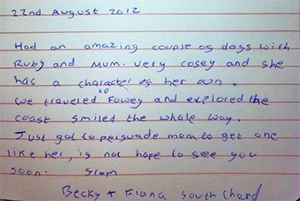 22nd August 2012
Had an amazing couple of days with
Ruby and Mum. Very cosey and she
has a character of her own.
We traveled to Fowey and explored the
coast smiled the whole way.
Just got to persuade mom to get one
like her, is not hope to see you
soon. Siam
Becky + Fiona South Chard